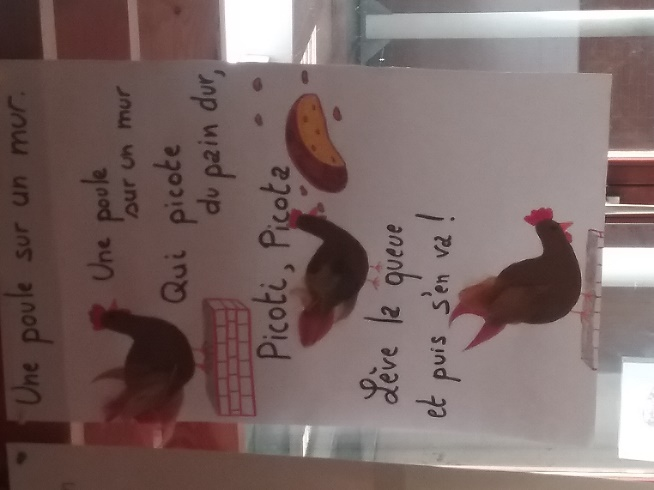 Une poule sur un mur.
Une poule
sur un mur
Qui picote
du pain dur,
Picoti, Picota
Lève la queue
et puis s'en va !